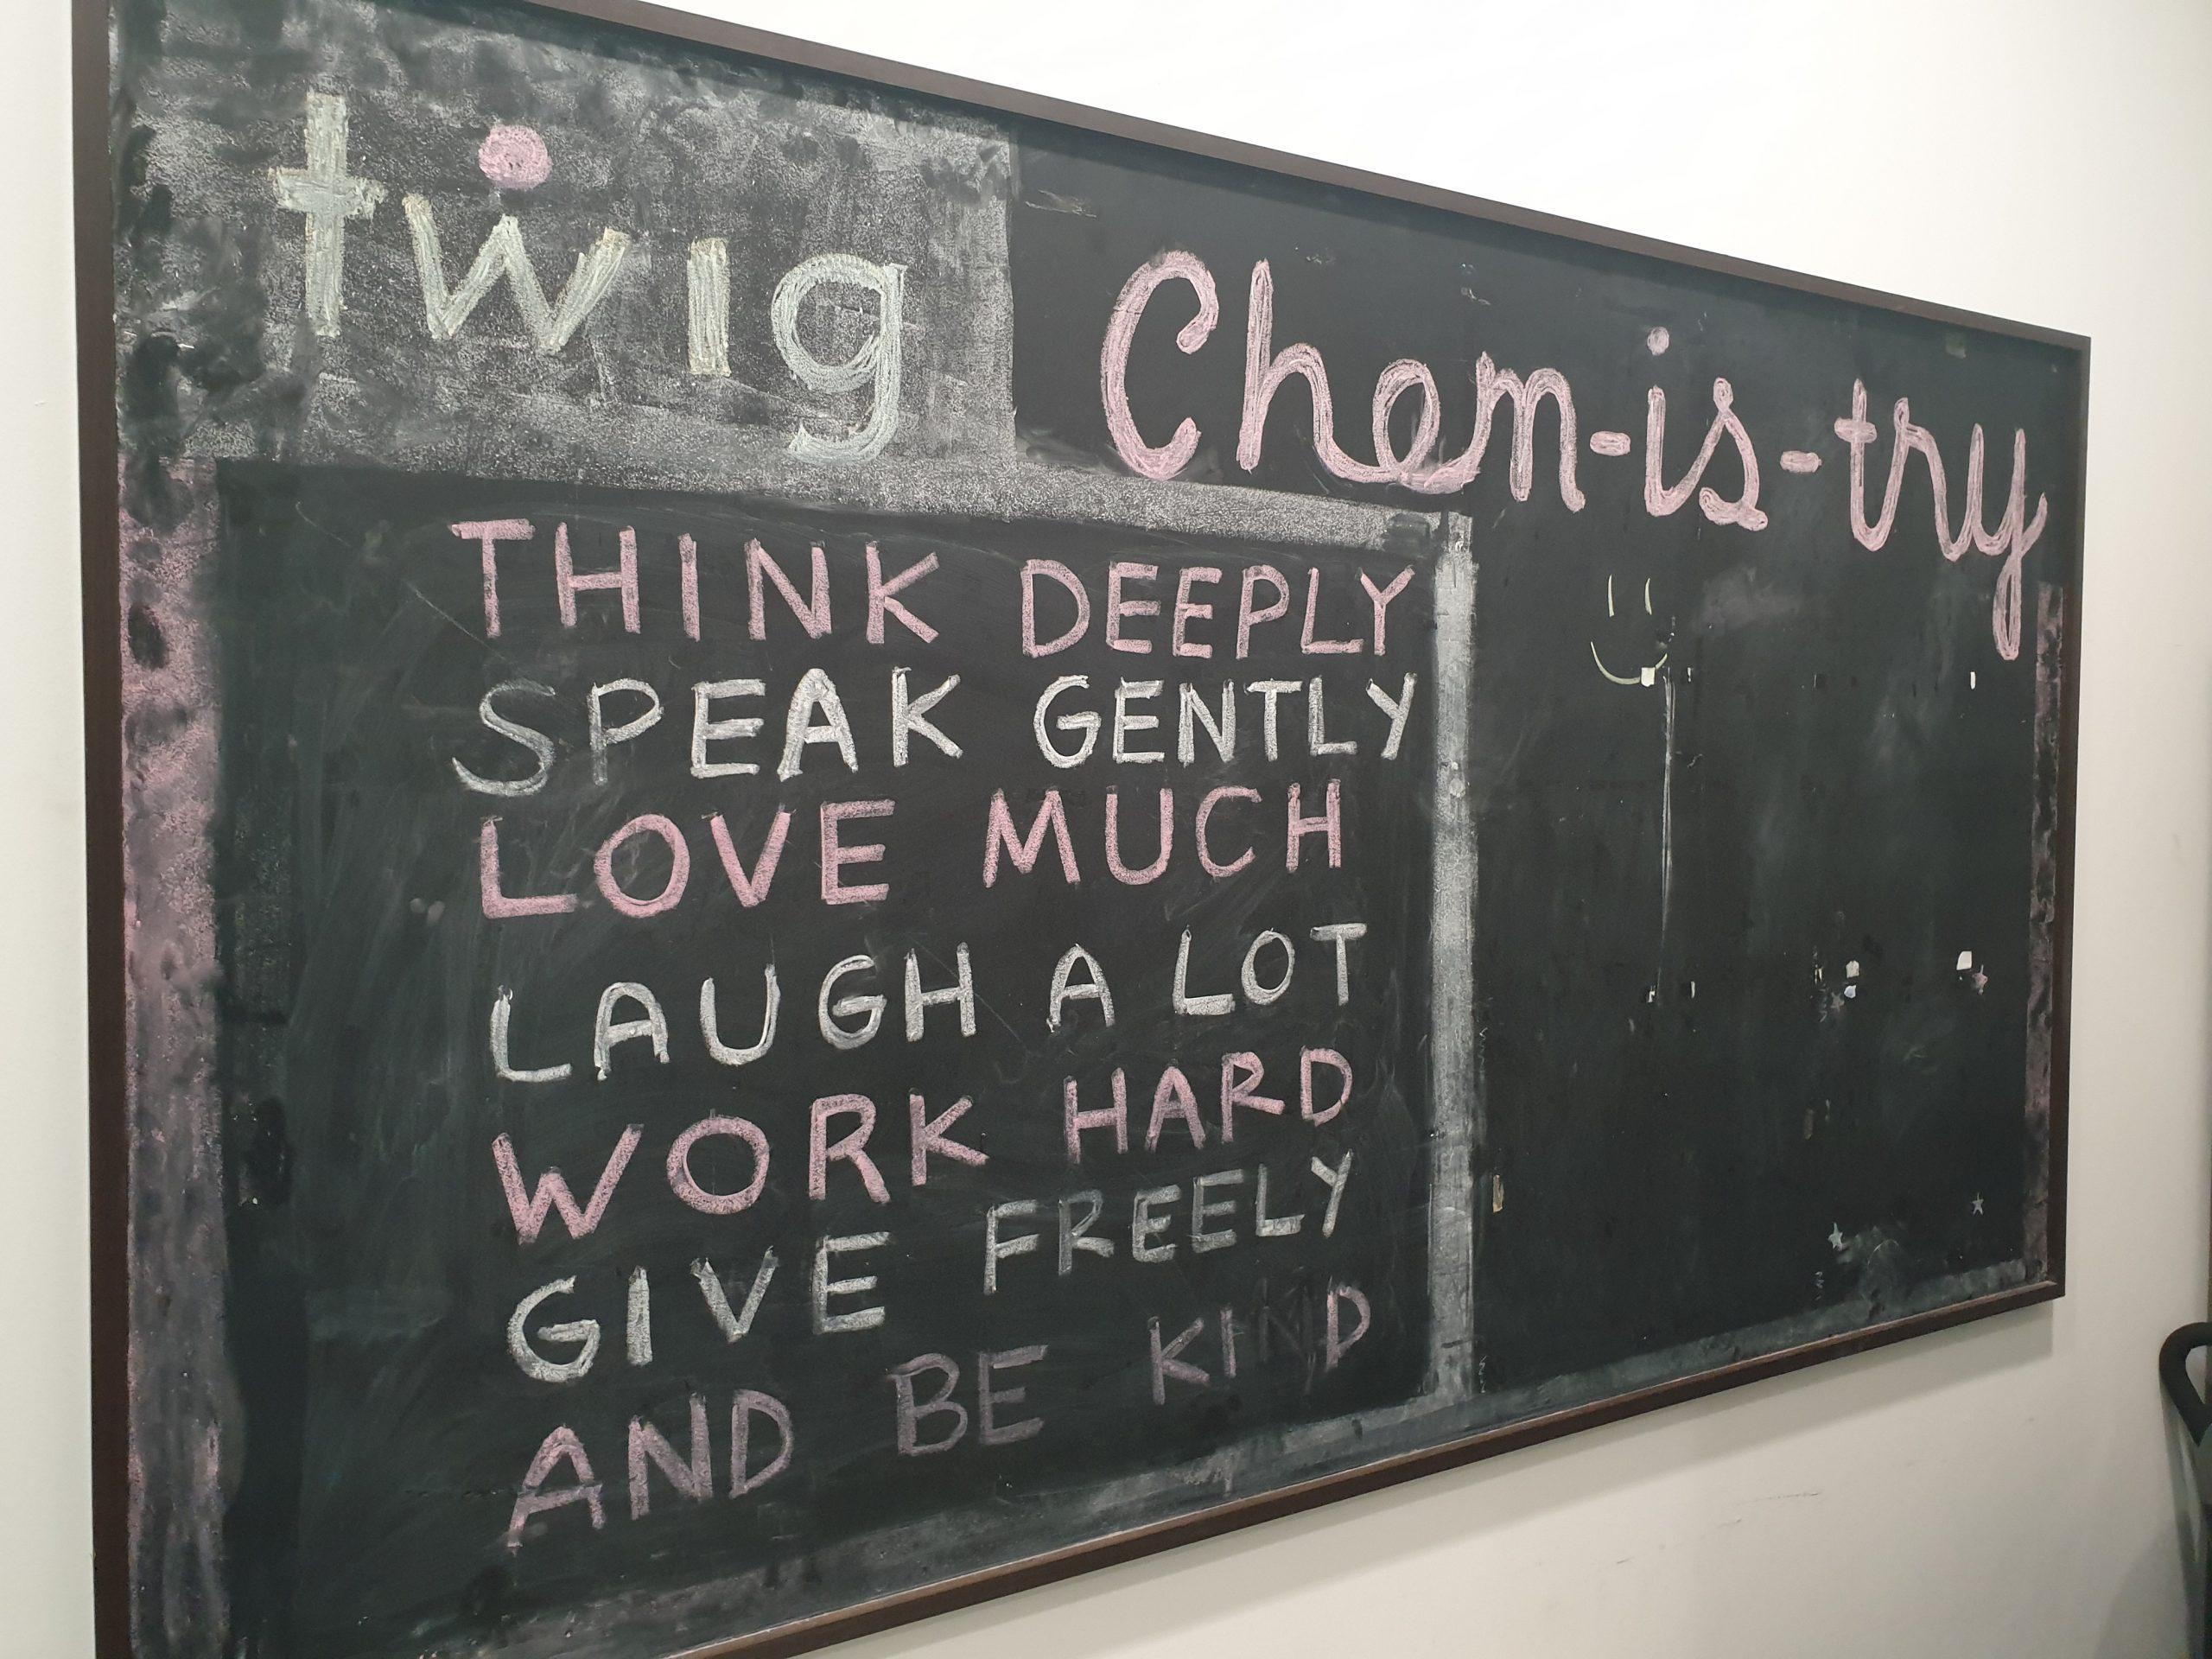 twig
Chem-is-try
THINK DEEPLY
SPEAK GENTLY
LOVE MUCH
LAUGH A LOT
WORK HARD
GIVE FREELY
AND BE KIND